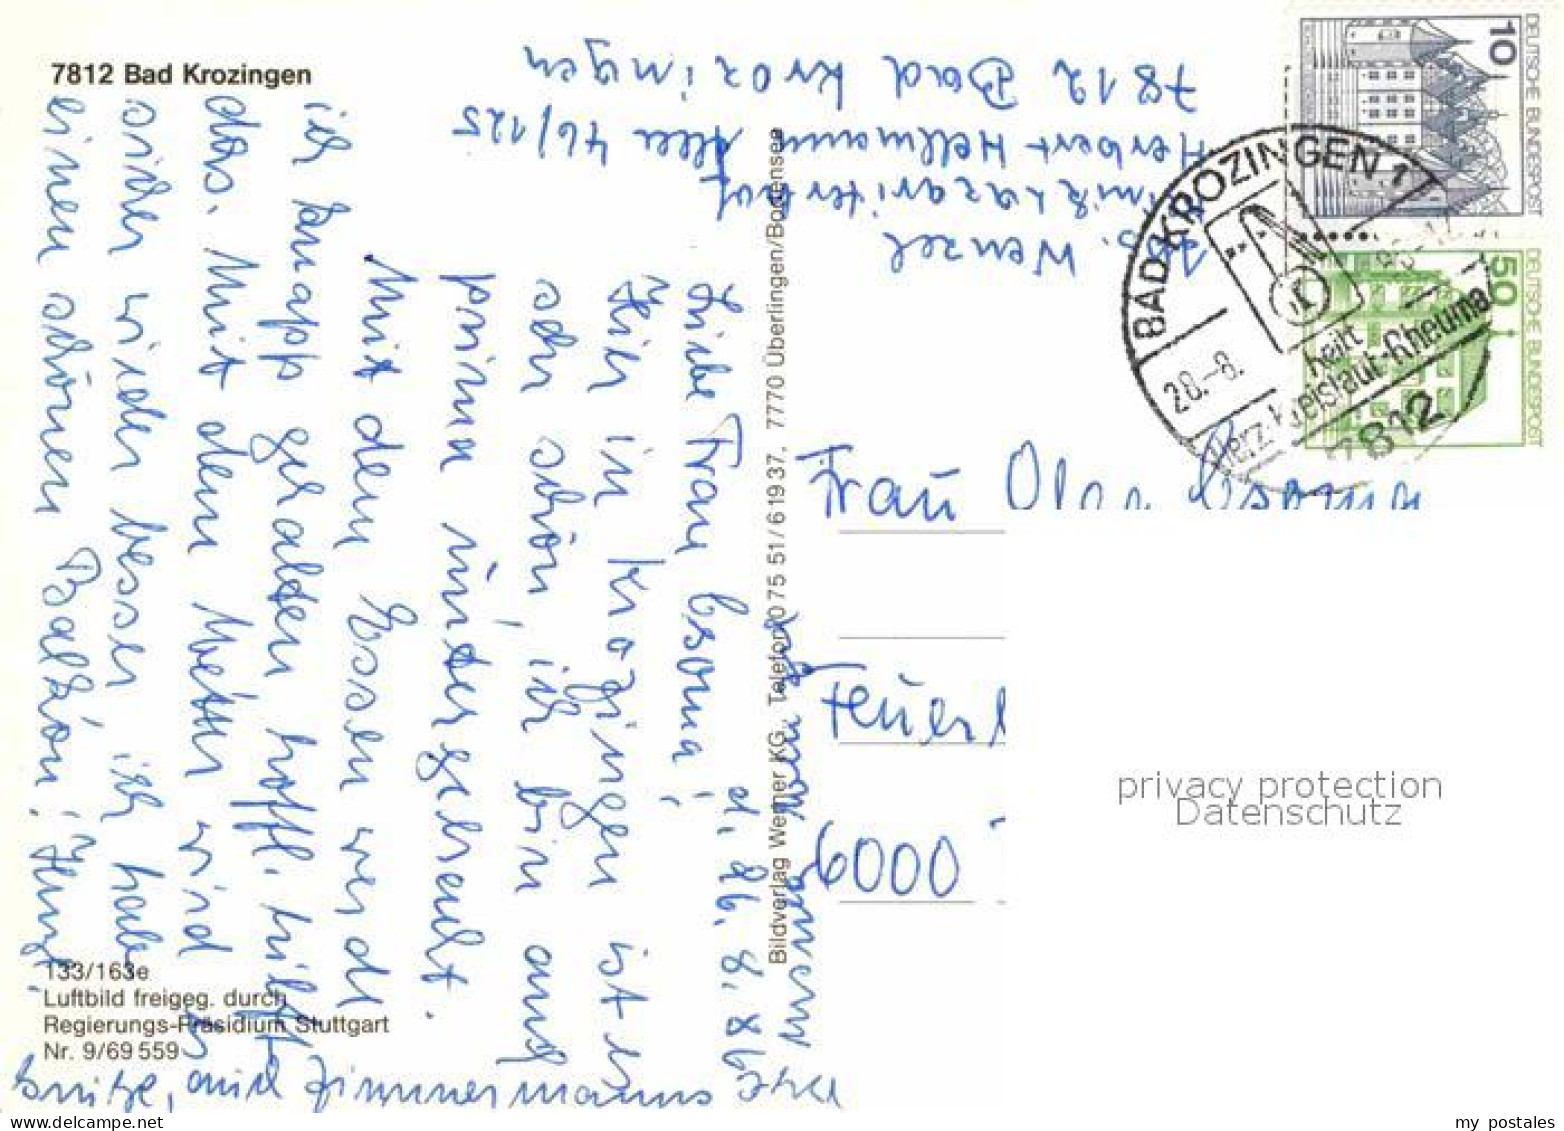 7812 Bad Krozingen
Wenzel
Herbert Hellmann Allee 46/125
7812 Bad Krozingen
DEUTSCHE BUNDESPOST
10
DEUTSCHE BUNDESPOST
50
BAD KROZINGEN 1
28.-8.
heilt
Herz-Kreislauf-Rheuma
7812
d. 26. 8. 86
Liebe Frau
Hier in Krozingen ist es
sehr schön, ich bin auch
prima untergebracht.
Mit dem Essen werde
ich knapp gehalten hoffl. hilft
das. Mit dem Wetter wird es
wieder besser ich habe
einen schönen Balkon!
Grüße, auch Zimmermanns
Frau
6000
Bildverlag Werner KG, Telefon 0 75 51/6 19 37, 7770 Überlingen/Bodensee
133/163e
Luftbild freigeg. durch
Regierungs-Präsidium Stuttgart
Nr. 9/69 559
privacy protection
Datenschutz
my postales